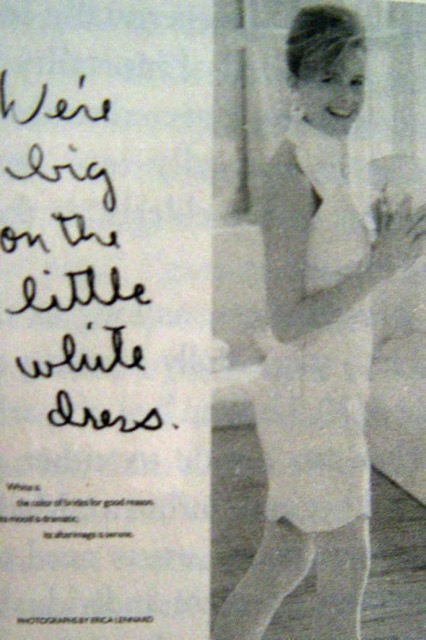 We're
big
on the
little
white
dress.
White is
the color of brides for good reason.
Its mood is dramatic,
its afterimage is serene.
PHOTOGRAPHS BY ERICA LENNARD